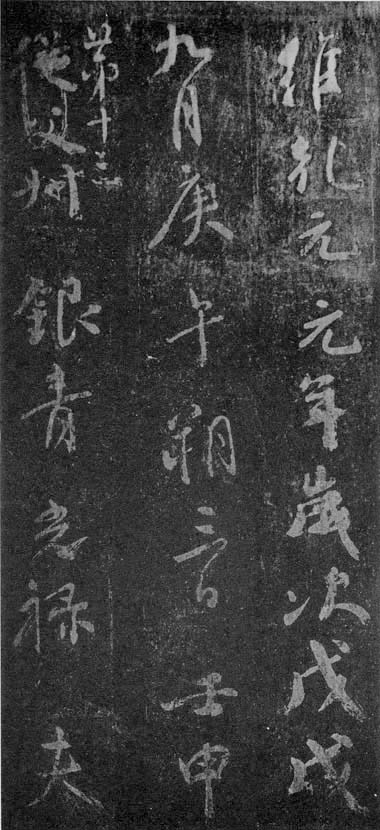 維乾元元年歲次戊戌
九月庚午朔三日壬申
第十三
從父叔銀青光祿夫